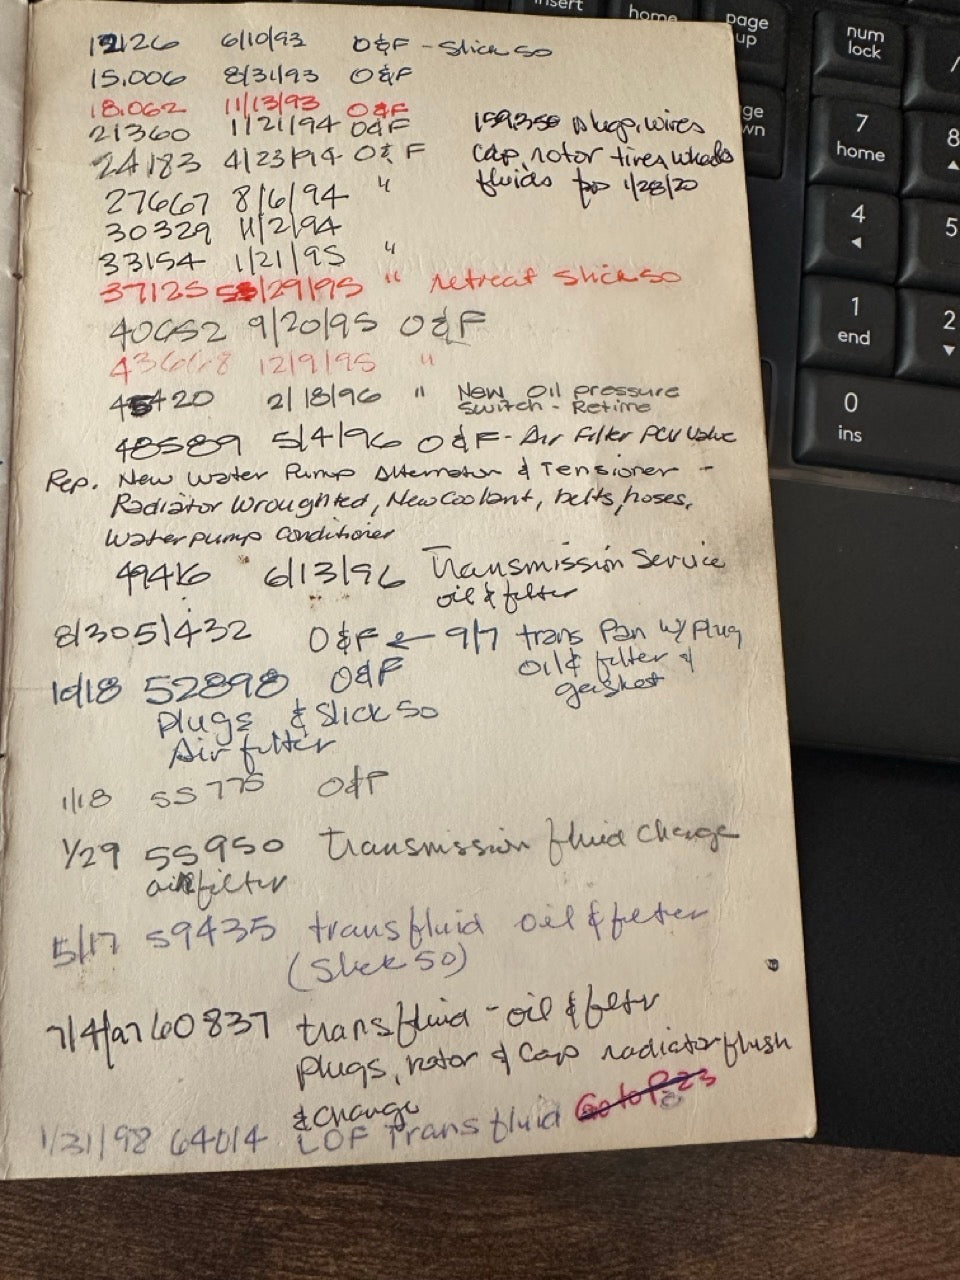 12126 6/10/93 O&F - Slick 50
15,006 8/31/93 O&F
18,062 11/13/93 O&F
21360 1/21/94 O&F
24183 4/23/94 O&F
27667 8/6/94 "
30329 11/2/94
33154 1/21/95 "
37125 5/29/95 " retreat Slick 50
40052 9/20/95 O&F
43668 12/9/95 "
45420 2/18/96 " New Oil pressure
switch - Retime
48589 5/4/96 O&F - Air Filter PCV Valve
Rep. New Water Pump Alternator & Tensioner -
Radiator Wroughted, New Coolant, belts, hoses,
Water pump Conditioner
49416 6/13/96 Transmission Service
oil & filter
8/30 51432 O&F ← 9/7 trans Pan w/ Plug
oil & filter &
gasket
10/18 52898 O&F
Plugs & Slick 50
Air filter
1/18 55775 O&F
1/29 55950 transmission fluid change
air filter
5/17 59435 trans fluid oil & filter
(Slick 50)
7/4/97 60837 trans fluid - oil & filter
Plugs, rotor & Cap radiator flush
& change
1/31/98 64014 LOF Trans fluid Go to P. 23
159350 plugs, wires
cap, rotor tires, wheels
fluids 1/28/20
insert
home
page
up
num
lock
/
7
home
8
4
5
1
end
2
0
ins